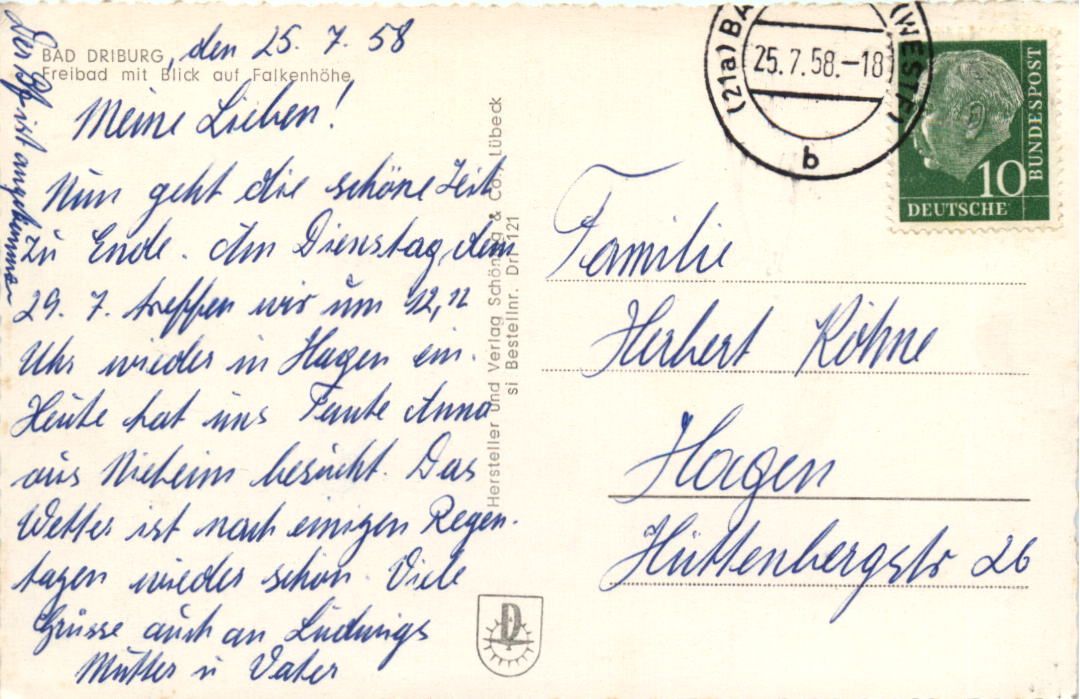 BAD DRIBURG, den 25. 7. 58
Freibad mit Blick auf Falkenhöhe
Meine Lieben!
Nun geht die schöne Zeit
zu Ende. Am Dienstag, dem
29. 7. treffen wir um 12,12
Uhr wieder in Hagen ein.
Heute hat uns Tante Anna
aus Nieheim besucht. Das
Wetter ist nach einigen Regen-
tagen wieder schön. Viele
Grüsse auch an Ludwigs
Mutter u Vater
Der Bf ist angekommen
Hersteller und Verlag Schöning & Co., Lübeck
si Bestellnr. Dri 121
(21a) BA (WESTF)
25.7.58.-18
b
10
DEUTSCHE
BUNDESPOST
Familie
Herbert Köhne
Hagen
Hüttenbergstr 26